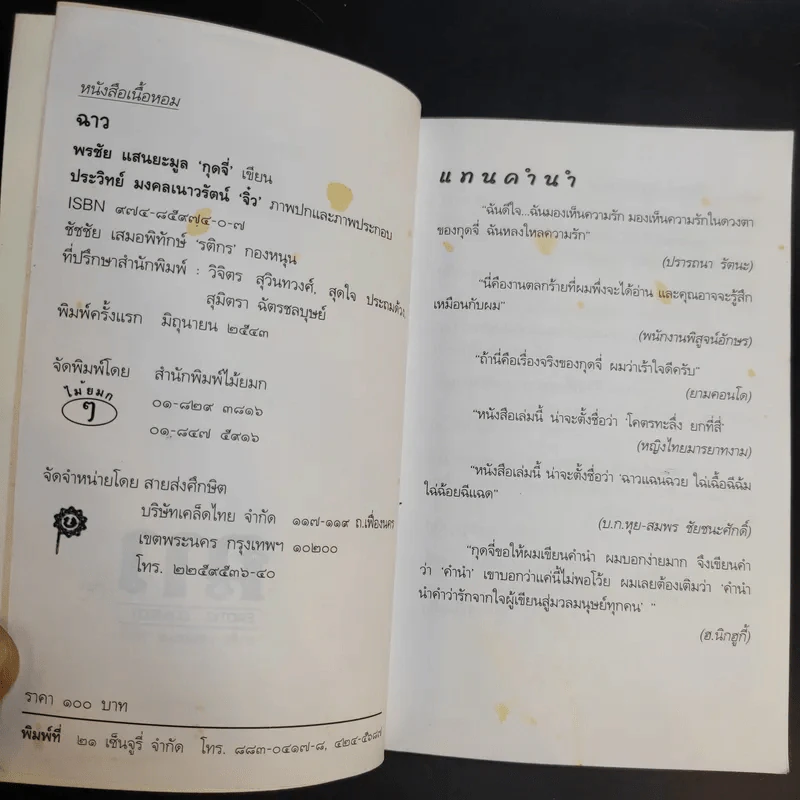 หนังสือเนื้อหอม
ฉาว
พรชัย แสนยะมูล 'กุดจี่' เขียน
ประวิทย์ มงคลเนาวรัตน์ 'จิ๋ว' ภาพปกและภาพประกอบ
ISBN ๙๗๔-๘๕๙๗๔-๐-๗
ชัชชัย เสมอพิทักษ์ 'รติกร' กองหนุน
ที่ปรึกษาสำนักพิมพ์ : วิจิตร สุวินทวงศ์, สุดใจ ประถมด้วง,
สุมิตรา ฉัตรชลบุษย์
พิมพ์ครั้งแรก มิถุนายน ๒๕๔๓
จัดพิมพ์โดย สำนักพิมพ์ไม้ยมก
ไม้ยมก
ๆ
๐๑-๘๒๙ ๓๘๑๖
๐๑-๘๔๗ ๕๙๑๖
จัดจำหน่ายโดย สายส่งศึกษิต
บริษัทเคล็ดไทย จำกัด ๑๑๗-๑๑๙ ถ.เฟื่องนคร
เขตพระนคร กรุงเทพฯ ๑๐๒๐๐
โทร. ๒๒๕๙๕๓๖-๔๐
ราคา ๑๐๐ บาท
พิมพ์ที่ ๒๑ เซ็นจูรี่ จำกัด โทร. ๘๘๓-๐๔๑๗-๘,
แทนคำนำ
"ฉันดีใจ...ฉันมองเห็นความรัก มองเห็นความรักในดวงตา
ของกุดจี่ ฉันหลงใหลความรัก"
(ปรารถนา รัตนะ)
"นี่คืองานตลกร้ายที่ผมพึ่งจะได้อ่าน และคุณอาจจะรู้สึก
เหมือนกับผม"
(พนักงานพิสูจน์อักษร)
"ถ้านี่คือเรื่องจริงของกุดจี่ ผมว่าเร้าใจดีครับ"
(ยามคอนโด)
"หนังสือเล่มนี้ น่าจะตั้งชื่อว่า 'โคตรทะลึ่ง ยกที่สี่'
(หญิงไทยมารยาทงาม)
"หนังสือเล่มนี้ น่าจะตั้งชื่อว่า 'ฉาวแฉนฉ๋วย ใฉ่เฉื้อฉีฉ้ม
ใฉ่ฉ้อยฉีแฉด"
(บ.ก.หุย-สมพร ชัยชนะศักดิ์)
"กุดจี่ขอให้ผมเขียนคำนำ ผมบอกง่ายมาก จึงเขียนคำ
ว่า 'คำนำ' เขาบอกว่าแค่นี้ไม่พอโว้ย ผมเลยต้องเติมว่า 'คำนำ
นำคำว่ารักจากใจผู้เขียนสู่มวลมนุษย์ทุกคน' "
(ฮ.นิกฮูกี้)